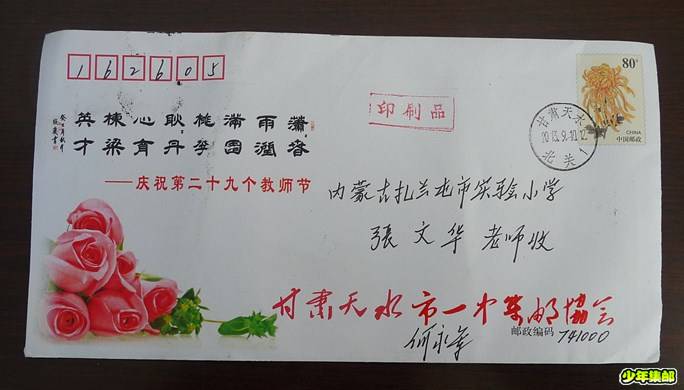 162605
80分
CHINA
中国邮政
印刷品
甘肃天水
2013.9.10.12
北关1
潇雨满桃耿心栋英
洒润园李丹育梁才
——庆祝第二十九个教师节
内蒙古扎兰屯市实验小学
張文华老师收
甘肃天水市一中集邮協会
邮政编码 741000
少年集邮